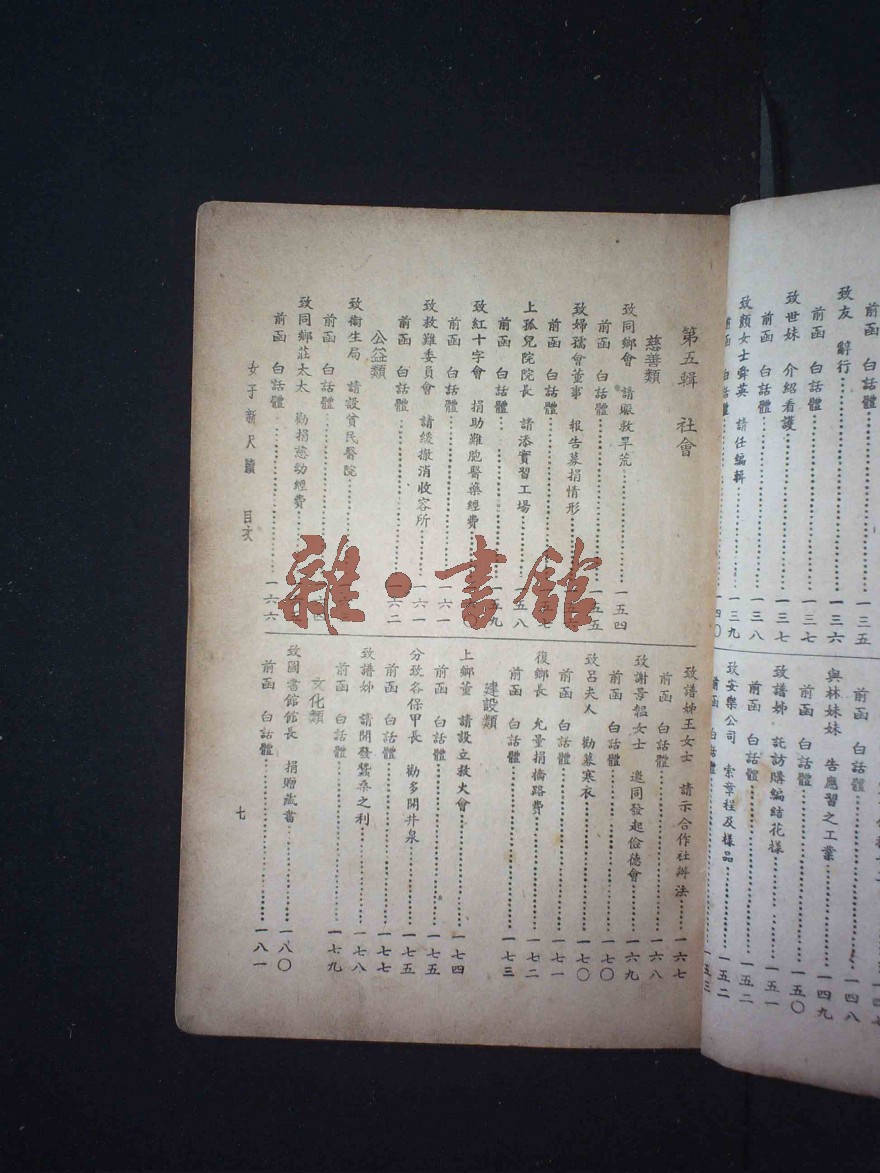 前函
致友 辭行……一三五
前函 白話體……一三六
致世妹 介紹看護……一三七
前函 白話體……一三八
致顏女士舜英 請任編輯……一三九
前函 白話體……一四〇
前函 白話體……一四八
與林妹妹 告應習之工業……一四九
前函 白話體……一五〇
致譜姊 託訪購編結花樣……一五一
前函 白話體……一五二
致安樂公司 索章程及樣品……一五二
前函 白話體……一五三
第五輯 社會
慈善類
致同鄉會 請賑救旱荒……一五四
前函 白話體……一五五
致婦孺會董事 報告募捐情形
前函 白話體
上孤兒院院長 請添實習工場……一五八
前函 白話體……一五九
致紅十字會 捐助難胞醫藥經費
前函 白話體……一六一
致救難委員會 請緩撤消收容所……一六一
前函 白話體……一六二
公益類
致衞生局 請設貧民醫院
前函 白話體
致同鄉莊太太 勸捐慈幼經費
前函 白話體……一六六
致譜姊王女士 請示合作社辦法……一六七
前函 白話體……一六八
致謝景韞女士 邀同發起儉德會……一六九
前函 白話體……一七〇
致呂夫人 勸募寒衣……一七〇
前函 白話體……一七一
復鄉長 允量捐橋路費……一七二
前函 白話體……一七三
建設類
上鄉董 請設立救火會……一七四
前函 白話體……一七五
分致各保甲長 勸多開井泉……一七五
前函 白話體……一七七
致譜姊 請開發蠶桑之利……一七八
前函 白話體……一七九
文化類
致圖書館館長 捐贈藏書……一八〇
前函 白話體……一八一
女子新尺牘 目次
七
雜·書館